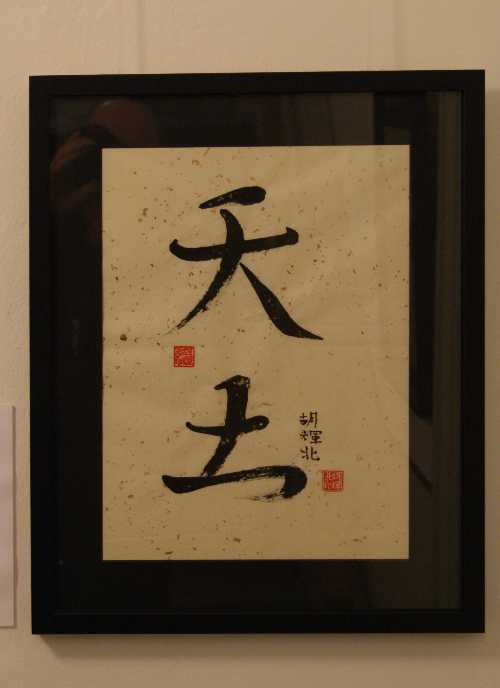 天土
胡煇北